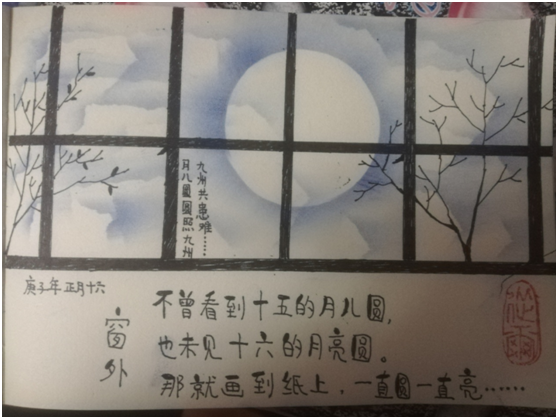 九州共患难……
月儿圆圆照九州
庚子年 正月十六
窗外
不曾看到十五的月儿圆,
也未见十六的月亮圆。
那就画到纸上,一直圆一直亮……